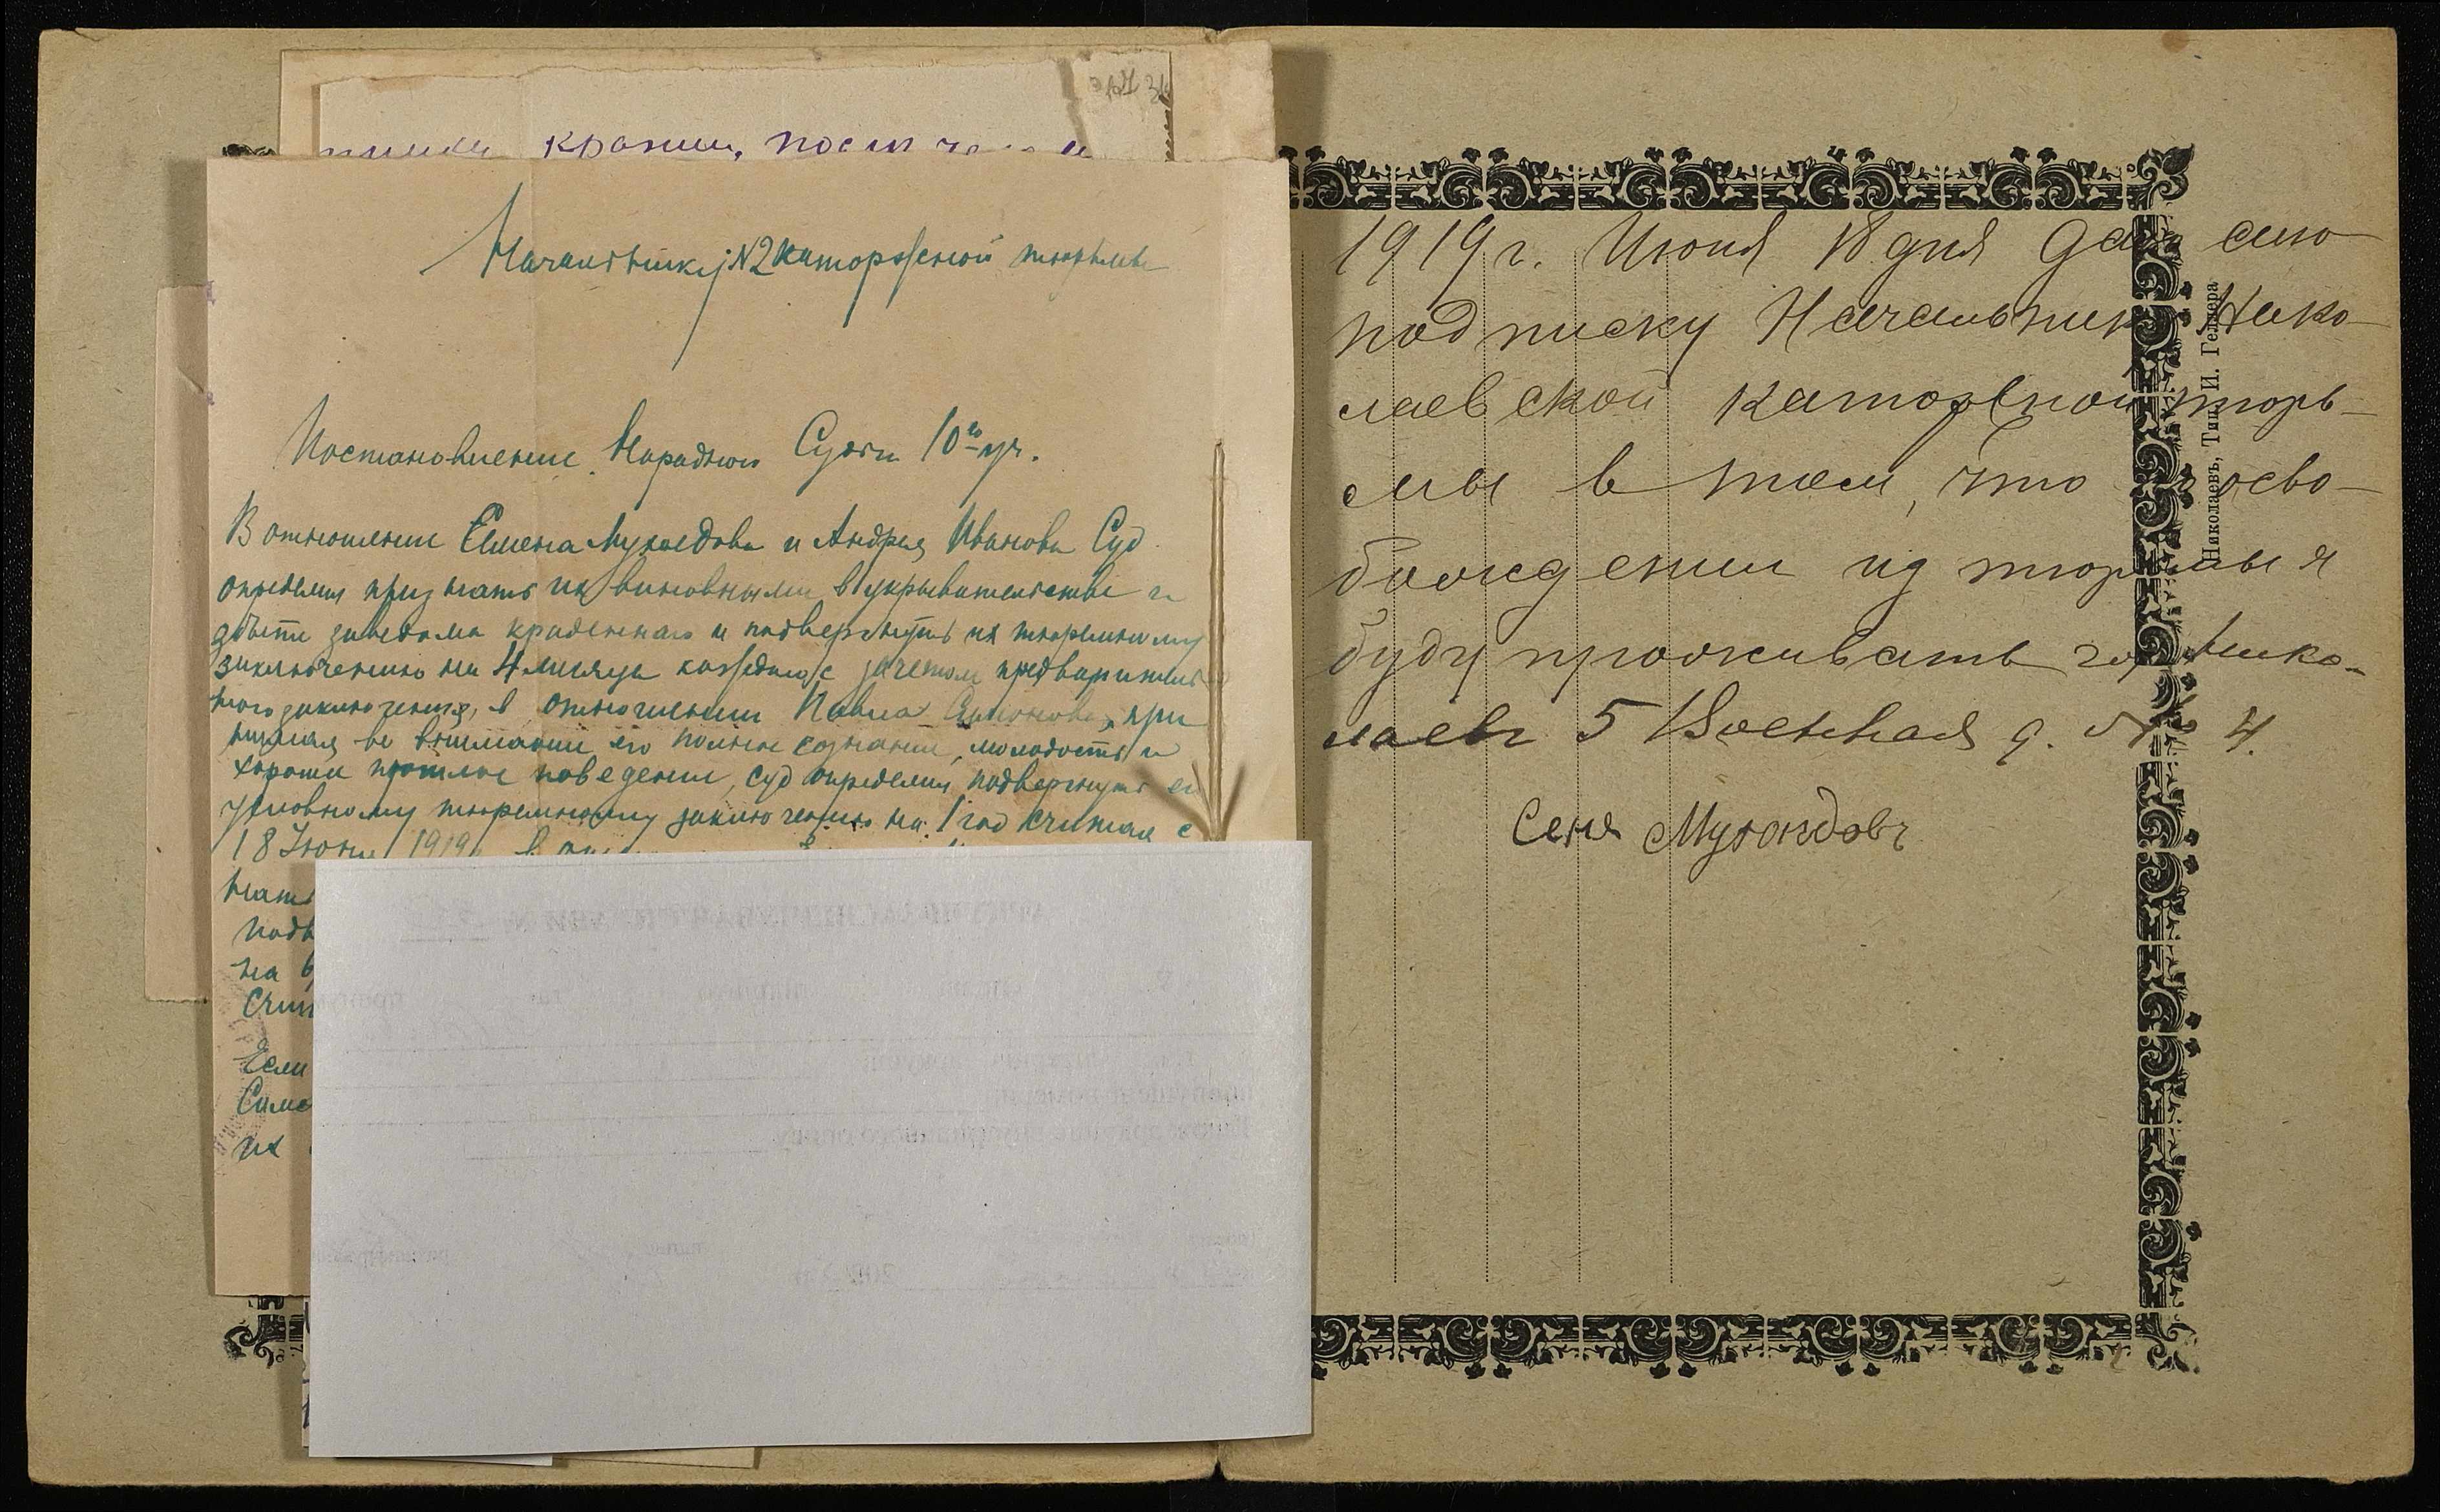 кражи, после
Начальнику N2 каторжской тюрьмы
Постановление Народного Судьи 10го уч.
В отношении Семена Мухоедова и Андрея Иванова Суд
определил признать их виновными в укрывательстве и
заведомо краденнаго и подвергнуть их тюремному
заключению на 4 месяца каждого с зачетом предваритель
ного заключения, в отношении Павла при
нимая во внимание его полное сознание, молодость и
хорошее прошлое поведение, суд определил подвергнуть ег
условному тюремному заключению на 1 год считая с
18 Июня 1919
нать
подв
на
Счит
Если
Симо
их
1919 г. Июня 18 дня дана сию
подписку Начальник Нико
лаевской каторжной тюрь
мы в том, что осво
бождении из тюрьмы я
буду проживать гор Нико
лаевъ 5 Военная д. № 4.
Сеня Мухоедовъ
Николаевъ, Тип. И. Геллера